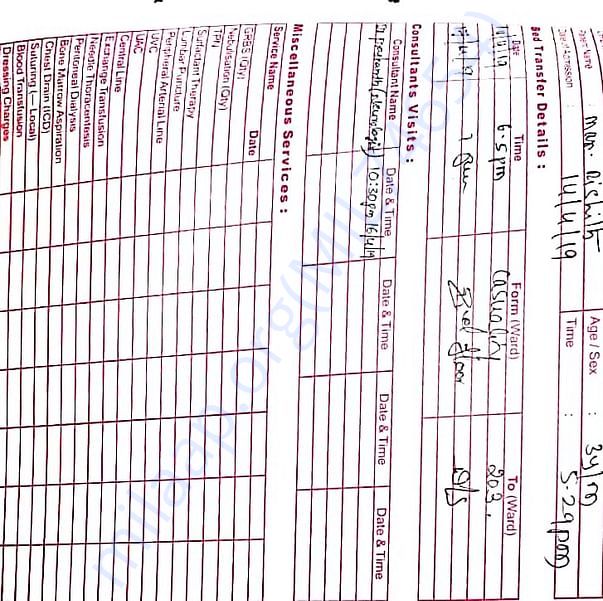 Patient Name : Mas. Rishith Age / Sex : 3y/m
Date of Admission : 14/4/19 Time : 5:29pm
Bed Transfer Details :
Date Time Form (Ward) To (Ward)
6.5pm Casualty 203.
Consultants Visits :
Consultant Name Date & Time Date & Time Date & Time Date & Time
10:30pm 16/4/19
Miscellaneous Services :
Service Name Date
GRBS (Qty)
Nebulisation (Qty)
TPN
Surfactant Therapy
Lumbar Puncture
Peripheral Arterial Line
UVC
UAC
Central Line
Exchange Transfusion
Needle Thoracentesis
Peritoneal Dialysis
Bone Marrow Aspiration
Chest Drain (ICD)
Suturing (— Local)
Blood Transfusion
Dressing Charges
milaap.org(MIL